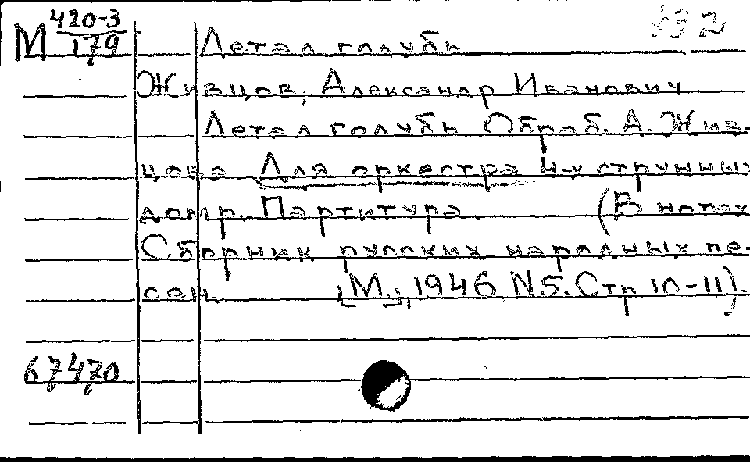 М 420-3
179
632
Летал голубь
Живцов, Александр Иванович
Летал голубь Обраб. А. Жив-
цова Для оркестра 4-х струнных
домр. Партитура. (В нотах
Сборник русских народных пе-
сен. [М.], 1946 N.5. Стр 10-11).
67470